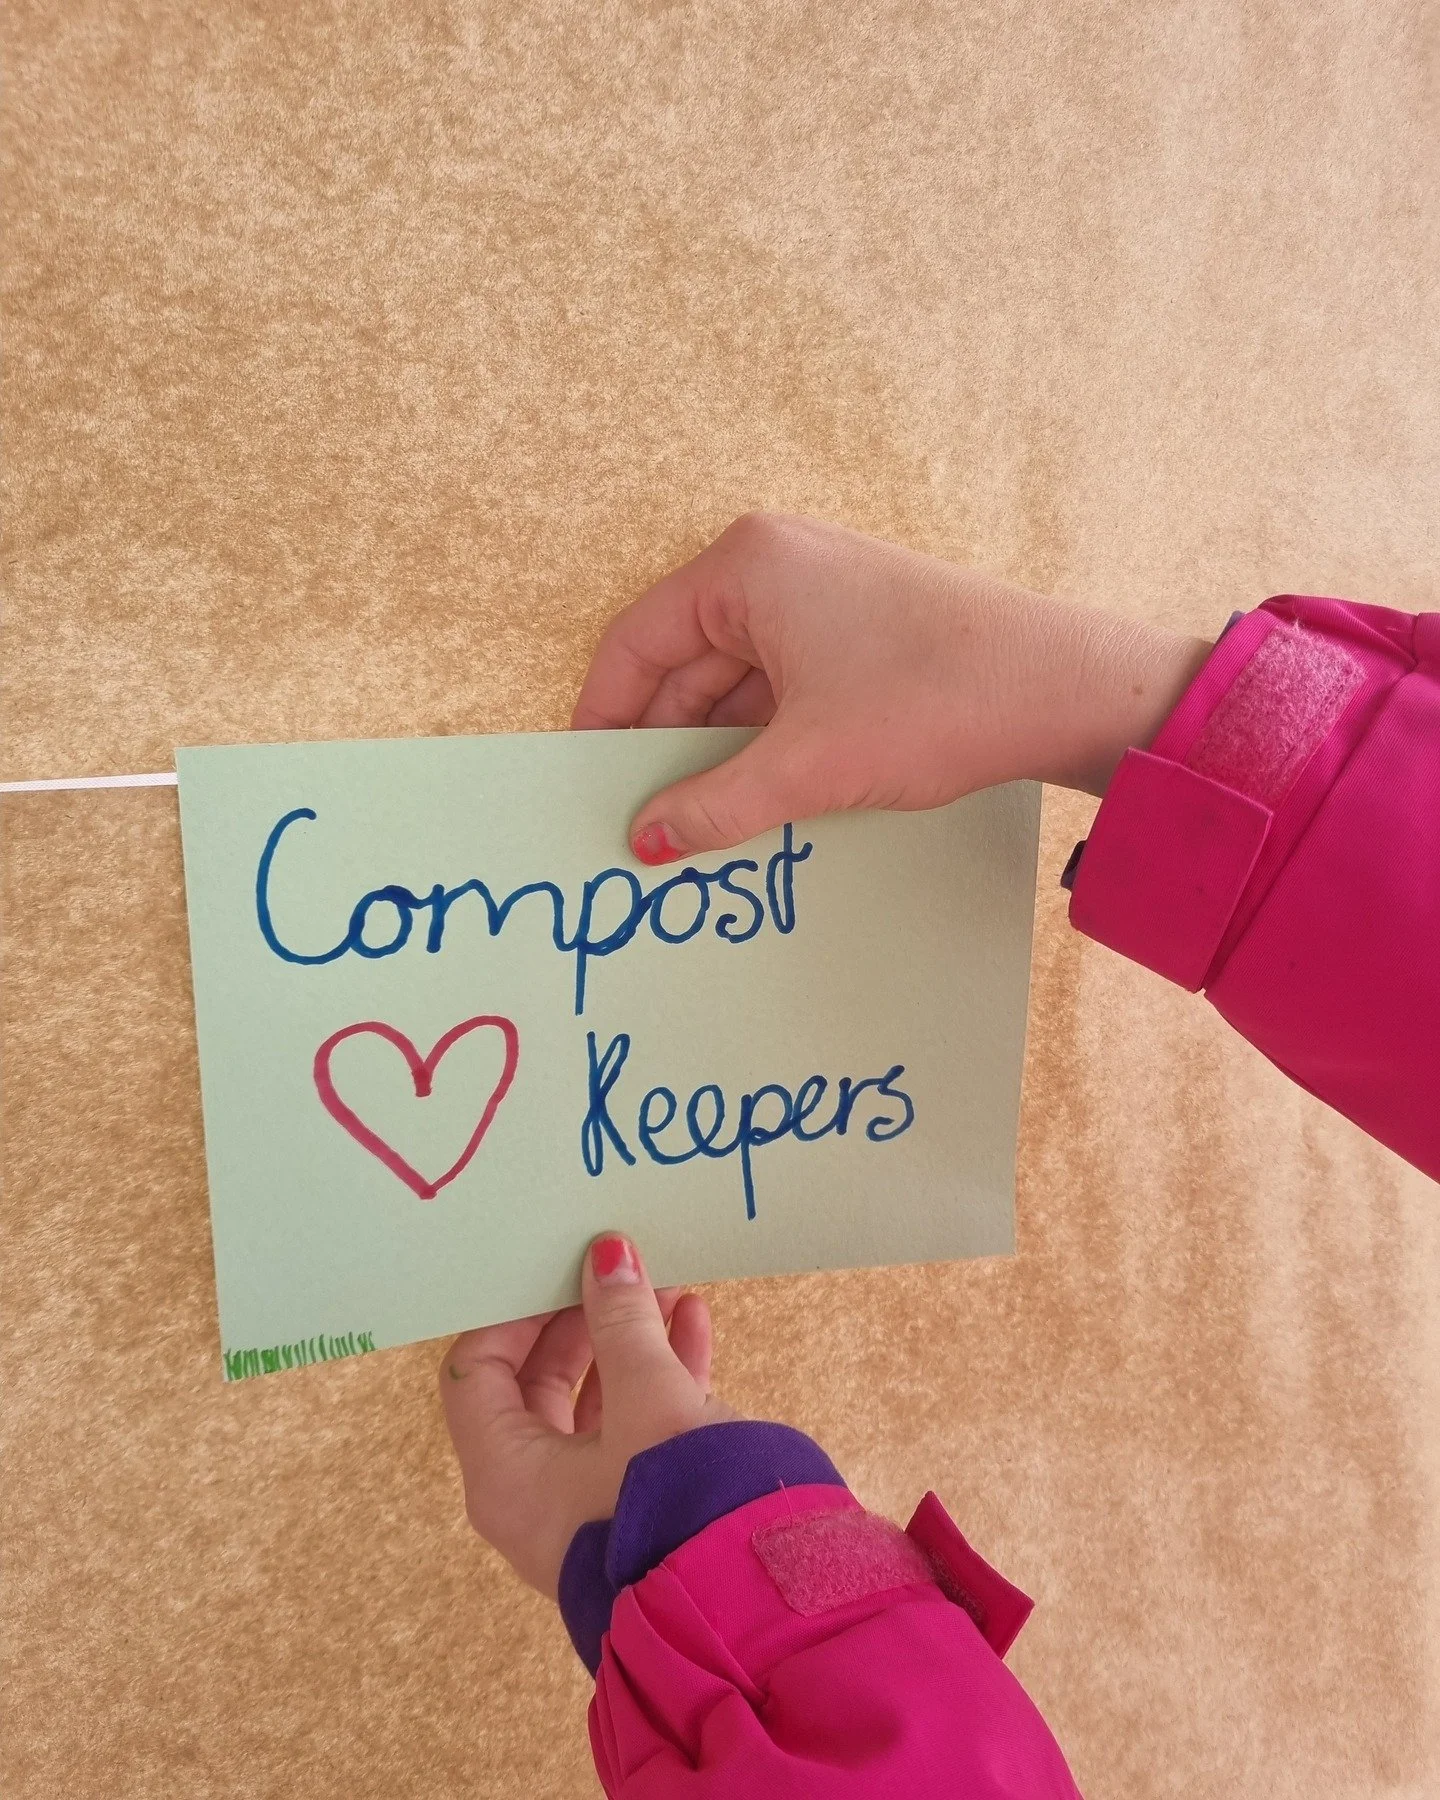 Compost
Keepers